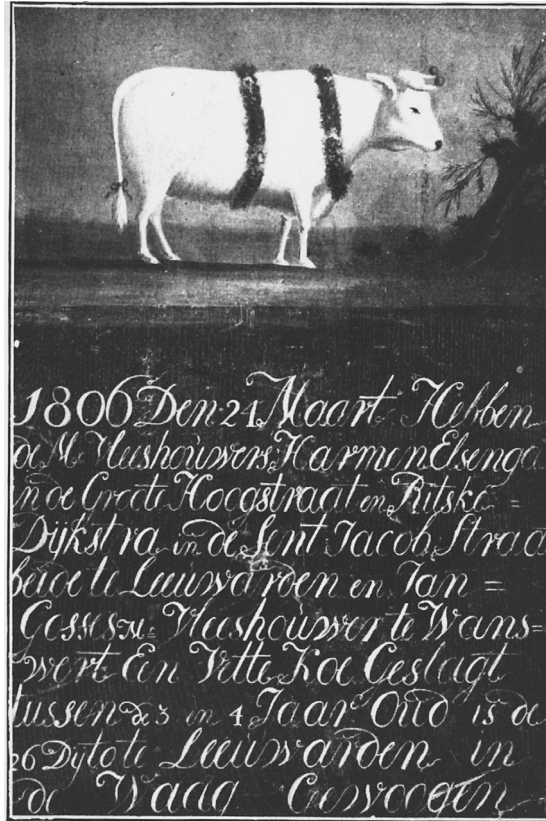 1806 Den 21 Maart Hebben
de Mr Vleeshouwers Harmen Elsenga
in de Groote Hoogstraat en Ritske =
Dijkstra in de Sint Jacob Straa
beide te Leeuwarden en Jan =
Gosses Mr Vleeshouwer te Wans=
wert Een Vette Koe Geslagt
tussen de 3 en 4 Jaar Oud is de
26 Dyto te Leeuwarden in
de Waag Gewoogen